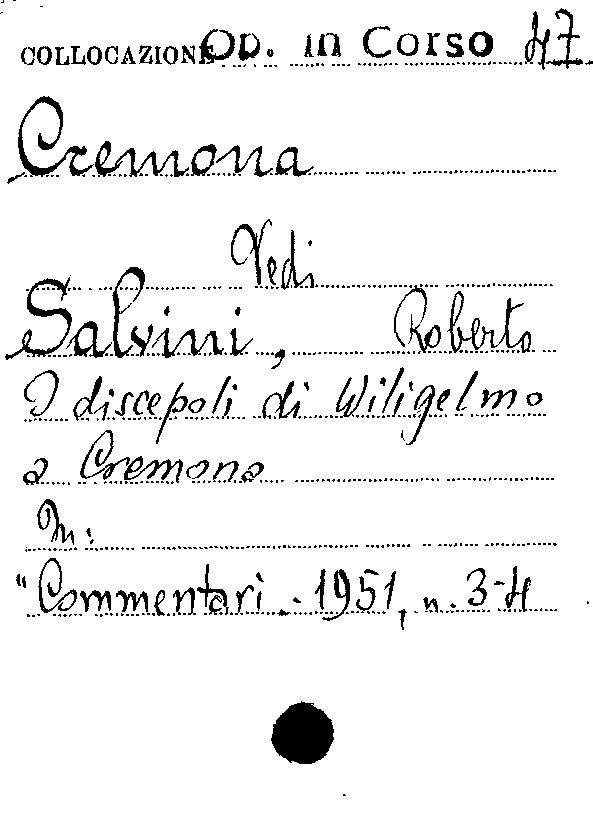 COLLOCAZIONE Op. in Corso 47
Cremona
Vedi
Salvini, Roberto
I discepoli di Wiligelmo
a Cremona
In:
"Commentari.- 1951, n. 3-4